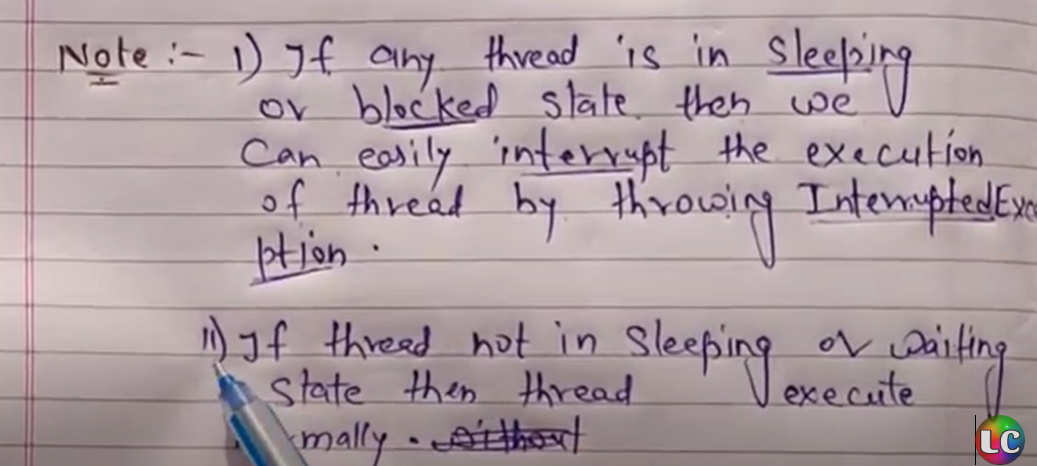 Note :- i) If any thread is in sleeping
or blocked state then we
Can easily interrupt the execution
of thread by throwing InterruptedExce
ption.
ii) If thread not in sleeping or waiting
state then thread execute
mally.
LC